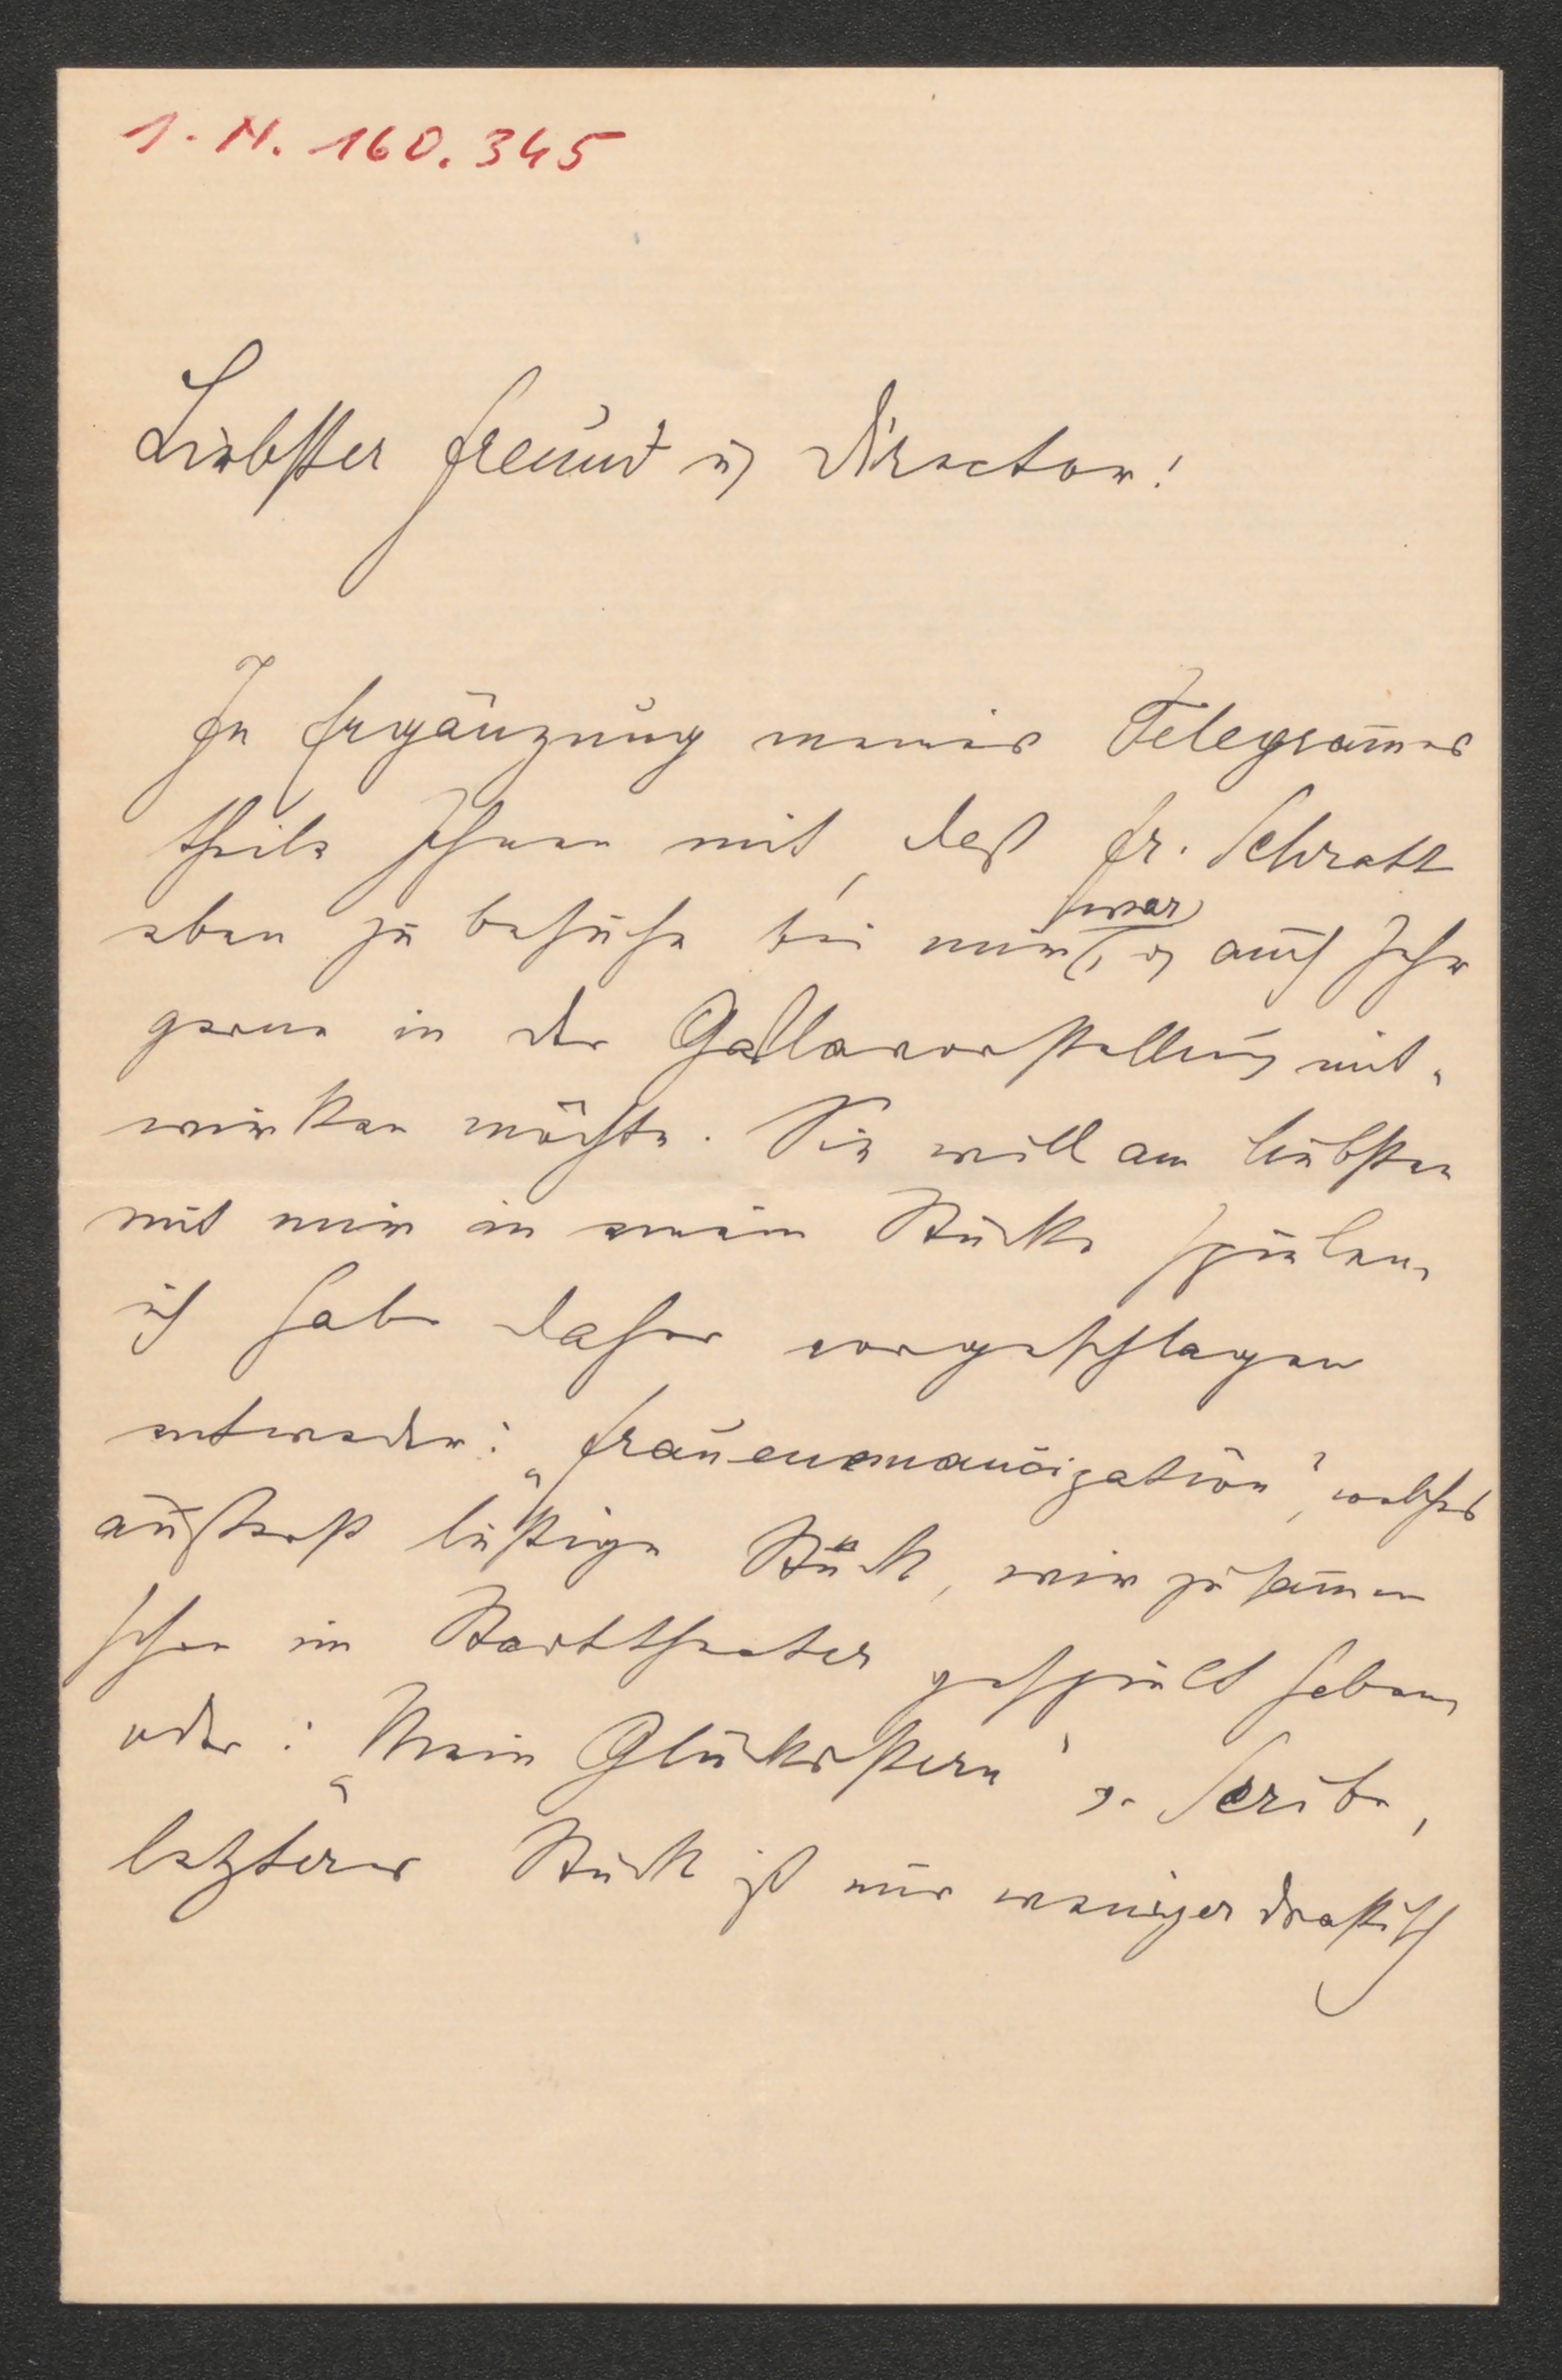 I.N. 160.345
Liebster Freund u Director!
In Ergänzung meines Telegram̄es
theile Ihnen mit, daß Fr. Schratt
eben zu Besuche bei mir war, u auch sehr
gerne in der Gallavorstellung mit-
wirken möchte. Sie will am liebsten
mit mir in einem Stücke spielen,
ich habe daher vorgeschlagen
entweder: „Frauenemancipation", welches
äußerst lustige Stück, wir zusam̄en
schon im Stadttheater gespielt haben,
oder: „Mein Glücksstern" v. Scribe,
letzteres Stück ist nur weniger drastisch